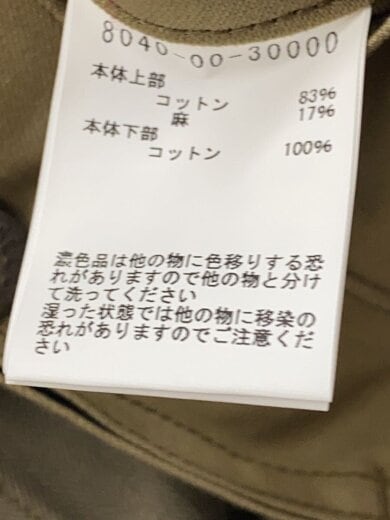 8040-00-30000
本体上部
コットン 83%
麻 17%
本体下部
コットン 100%
濃色品は他の物に色移りする恐
れがありますので他の物と分け
て洗ってください
湿った状態では他の物に移染の
恐れがありますのでご注意くだ
さい